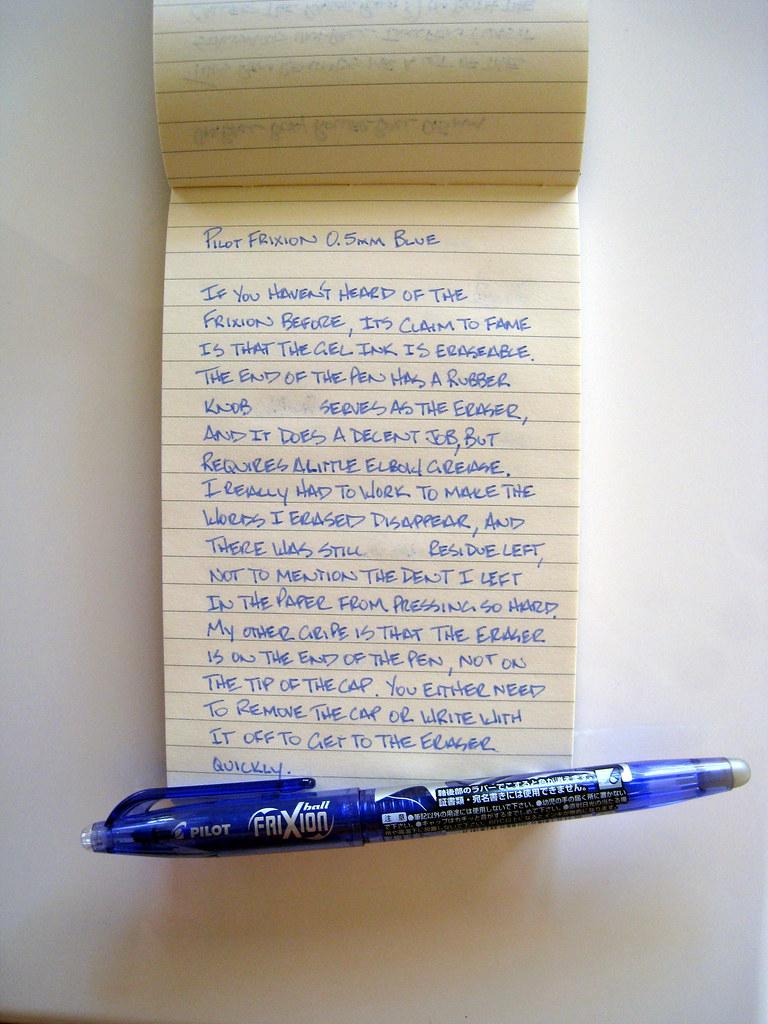 PILOT FRIXION 0.5MM BLUE
IF YOU HAVEN'T HEARD OF THE
FRIXION BEFORE, ITS CLAIM TO FAME
IS THAT THE GEL INK IS ERASEABLE.
THE END OF THE PEN HAS A RUBBER
KNOB SERVES AS THE ERASER,
AND IT DOES A DECENT JOB, BUT
REQUIRES A LITTLE ELBOW GREASE.
I REALLY HAD TO WORK TO MAKE THE
WORDS I ERASED DISAPPEAR, AND
THERE WAS STILL RESIDUE LEFT,
NOT TO MENTION THE DENT I LEFT
IN THE PAPER FROM PRESSING SO HARD.
MY OTHER GRIPE IS THAT THE ERASER
IS ON THE END OF THE PEN, NOT ON
THE TIP OF THE CAP. YOU EITHER NEED
TO REMOVE THE CAP OR WRITE WITH
IT OFF TO GET TO THE ERASER
QUICKLY.
PILOT
FRIXION ball
軸後部のラバーでこすると色が消えます。
証書類・宛名書きには使用できません。
注意 ●筆記以外の用途には使用しないで下さい。●幼児の手の届く所に置かない